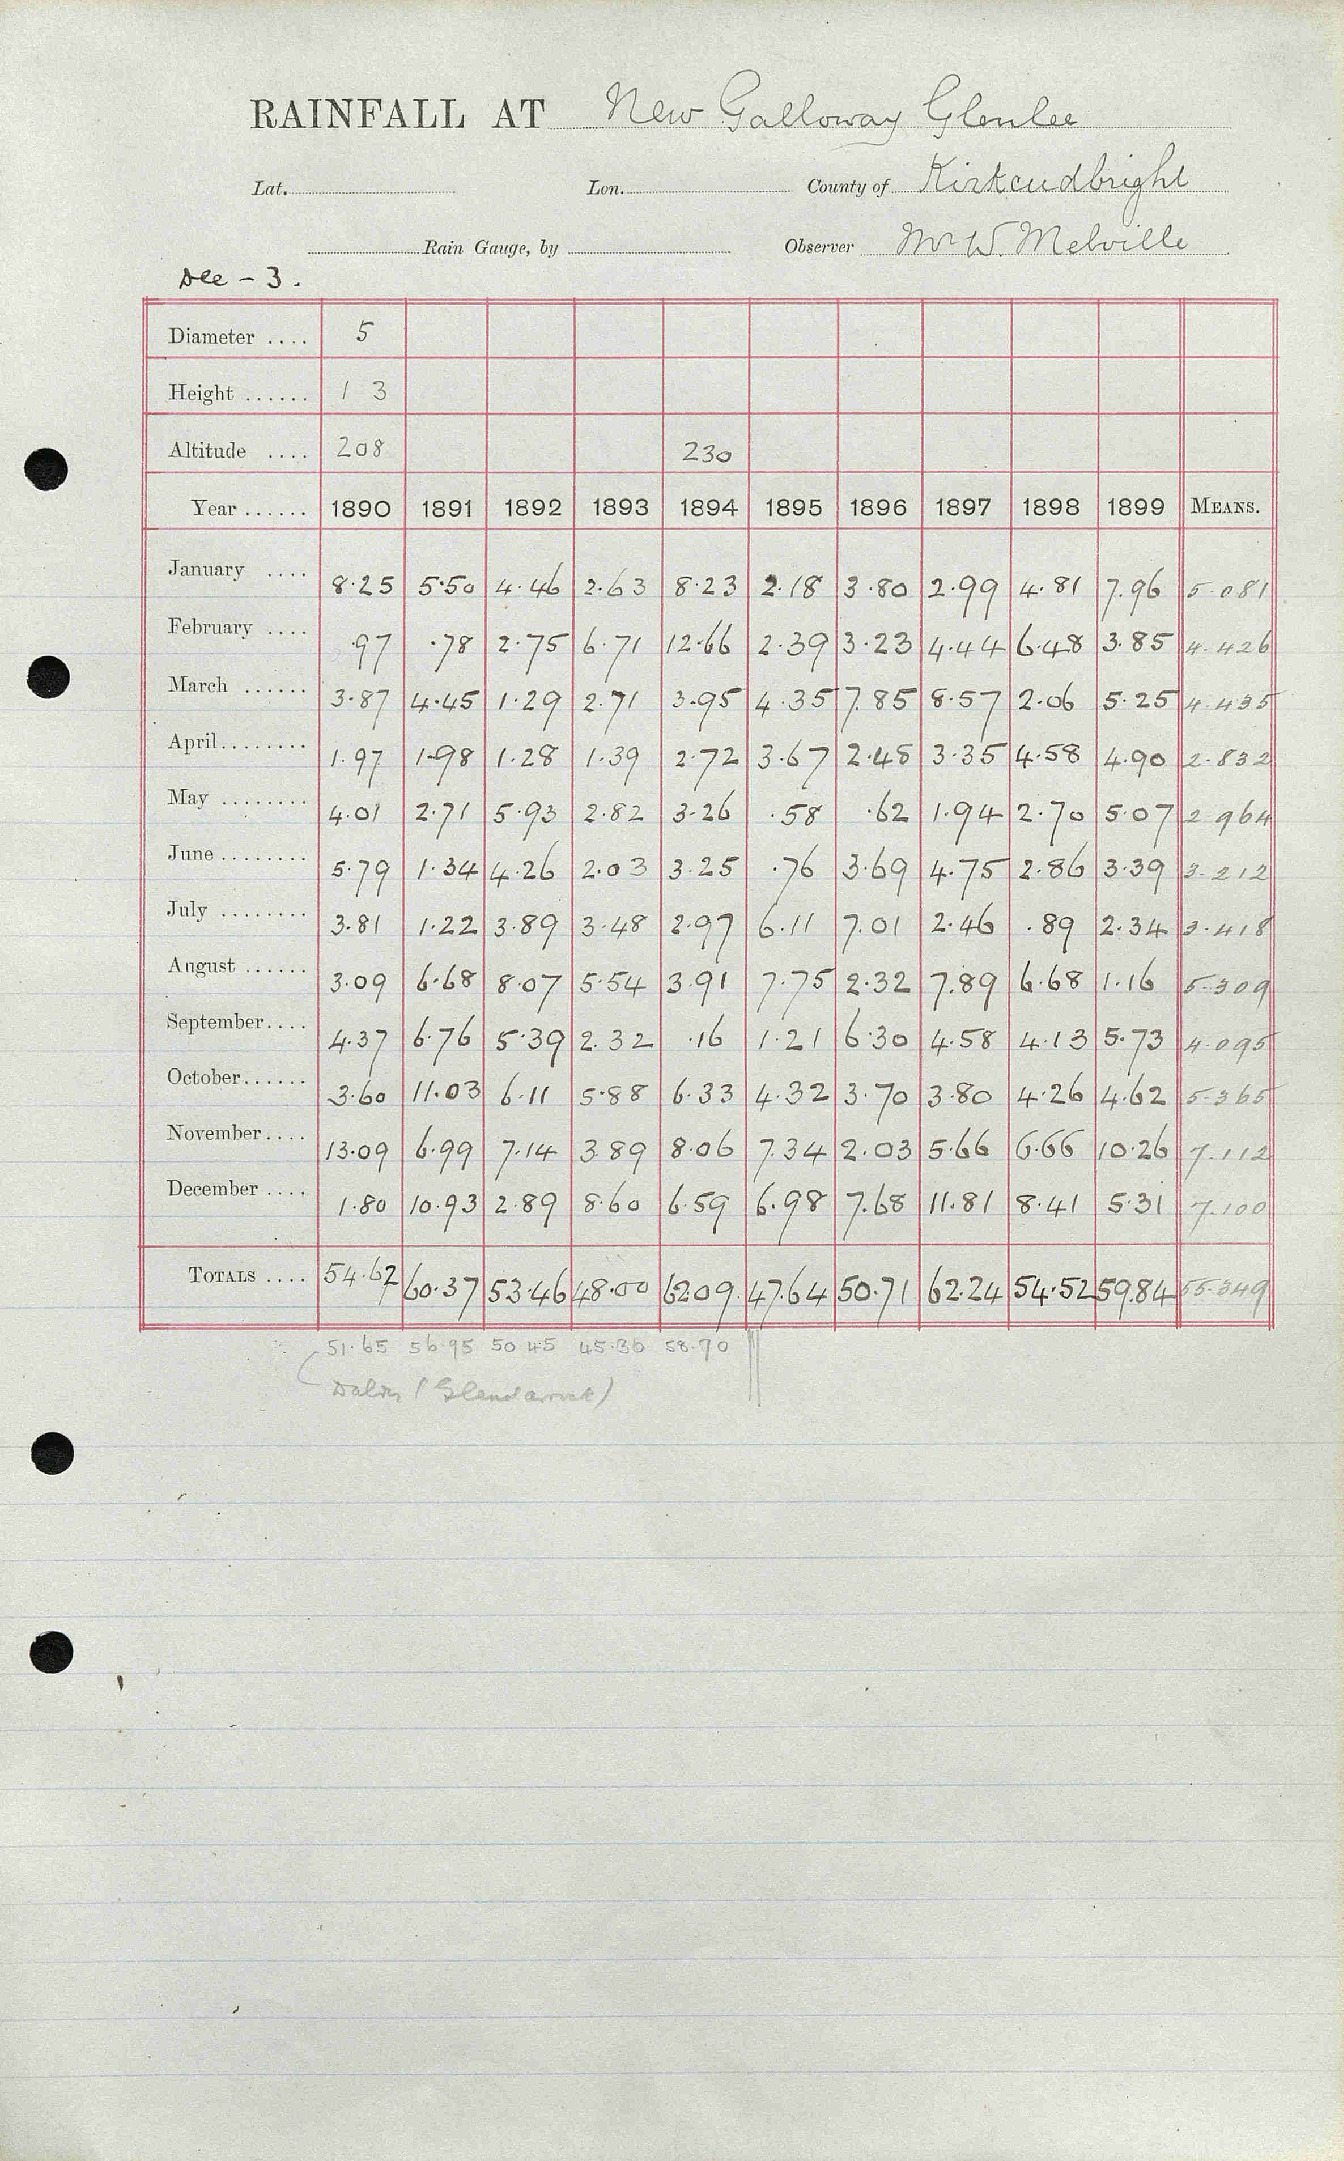 RAINFALL AT New Galloway Glenlee
Lat. Lon. County of Kirkcudbright
Rain Gauge, by Observer Mr W. Melville
Dee - 3.
Diameter .... 5
Height ...... 1 3
Altitude .... 208 230
Year ...... 1890 1891 1892 1893 1894 1895 1896 1897 1898 1899 MEANS.
January .... 8.25 5.50 4.46 2.63 8.23 2.18 3.80 2.99 4.81 7.96 5.081
February .... .97 .78 2.75 6.71 12.66 2.39 3.23 4.44 6.48 3.85 4.426
March ...... 3.87 4.45 1.29 2.71 3.95 4.35 7.85 8.57 2.06 5.25 4.435
April........ 1.97 1.98 1.28 1.39 2.72 3.67 2.48 3.35 4.58 4.90 2.832
May ........ 4.01 2.71 5.93 2.82 3.26 .58 .62 1.94 2.70 5.07 2.964
June ........ 5.79 1.34 4.26 2.03 3.25 .76 3.69 4.75 2.86 3.39 3.212
July ........ 3.81 1.22 3.89 3.48 2.97 6.11 7.01 2.46 .89 2.34 3.418
August ...... 3.09 6.68 8.07 5.54 3.91 7.75 2.32 7.89 6.68 1.16 5.309
September.... 4.37 6.76 5.39 2.32 .16 1.21 6.30 4.58 4.13 5.73 4.095
October...... 3.60 11.03 6.11 5.88 6.33 4.32 3.70 3.80 4.26 4.62 5.365
November.... 13.09 6.99 7.14 3.89 8.06 7.34 2.03 5.66 6.66 10.26 7.112
December .... 1.80 10.93 2.89 8.60 6.59 6.98 7.68 11.81 8.41 5.31 7.100
TOTALS .... 54.62 60.37 53.46 48.00 62.09 47.64 50.71 62.24 54.52 59.84 55.349
51.65 56.95 50.45 45.30 58.70
(Glendarroch)